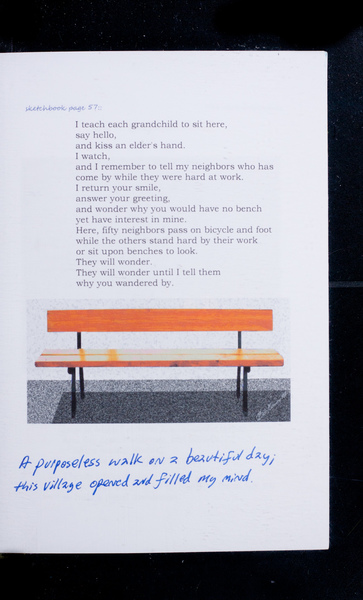 sketchbook page 57:
I teach each grandchild to sit here,
say hello,
and kiss an elder's hand.
I watch,
and I remember to tell my neighbors who has
come by while they were hard at work.
I return your smile,
answer your greeting,
and wonder why you would have no bench
yet have interest in mine.
Here, fifty neighbors pass on bicycle and foot
while the others stand hard by their work
or sit upon benches to look.
They will wonder.
They will wonder until I tell them
why you wandered by.
A purposeless walk on a beautiful day;
this village opened and filled my mind.